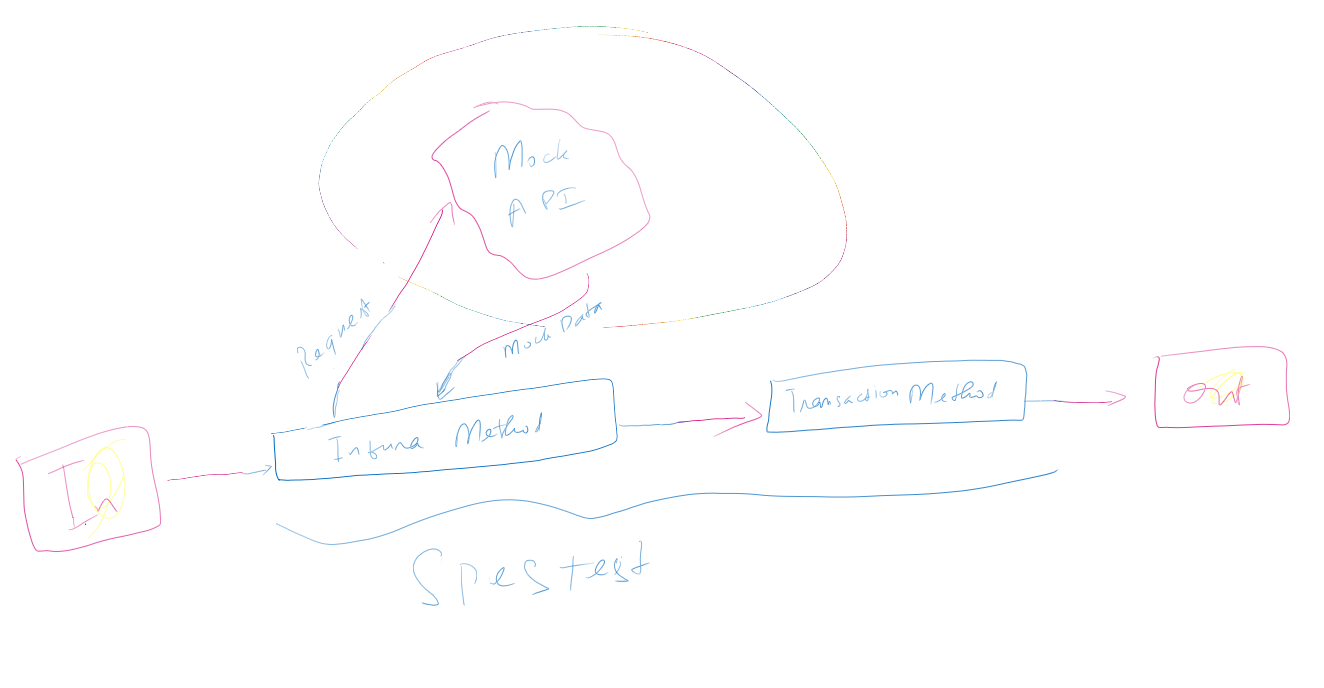 Mock
API
Request
Mock Data
Infura Method
Transaction Method
In
Out
Spestest